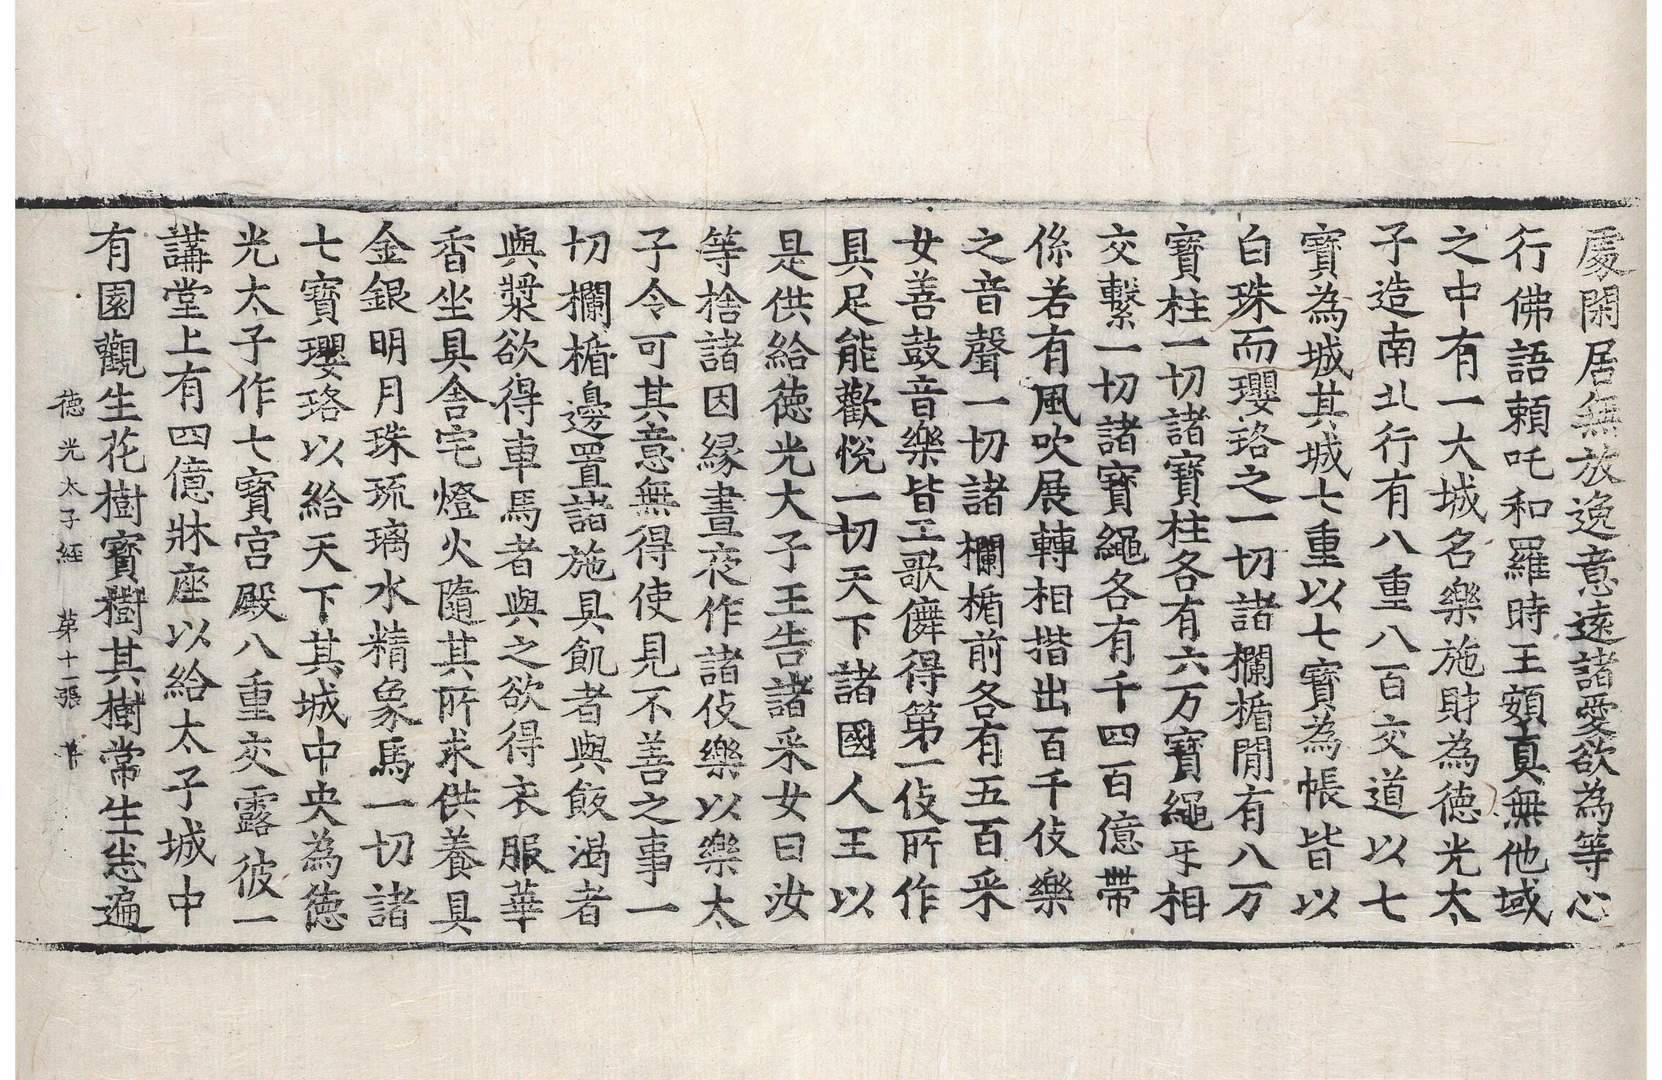 處閑居無放逸意遠諸愛欲為等心
行佛語頼吒和羅時王頞真無他域
之中有一大城名樂施財為德光太
子造南北行有八重八百交道以七
寶為城其城七重以七寶為帳皆以
白珠而瓔珞之一切諸欄楯間有八万
寶柱一切諸寶柱各有六万寶繩㸦相
交繫一切諸寶繩各有千四百億帶
係若有風吹展轉相揩出百千伎樂
之音聲一切諸欄楯前各有五百采
女善鼓音樂皆工歌儛得第一伎所作
具足能歡悅一切天下諸國人王以
是供給德光太子王告諸采女曰汝
等捨諸因緣晝夜作諸伎樂以樂太
子令可其意無得使見不善之事一
切欄楯邊置諸施具飢者與飯渴者
與漿欲得車馬者與之欲得衣服華
香坐具舍宅燈火隨其所求供養具
金銀明月珠琉璃水精象馬一切諸
七寶瓔珞以給天下其城中央為德
光太子作七寶宮殿八重交露彼一
講堂上有四億牀座以給太子城中
有園觀生花樹寶樹其樹常生悉遍
德光太子經 第十一張